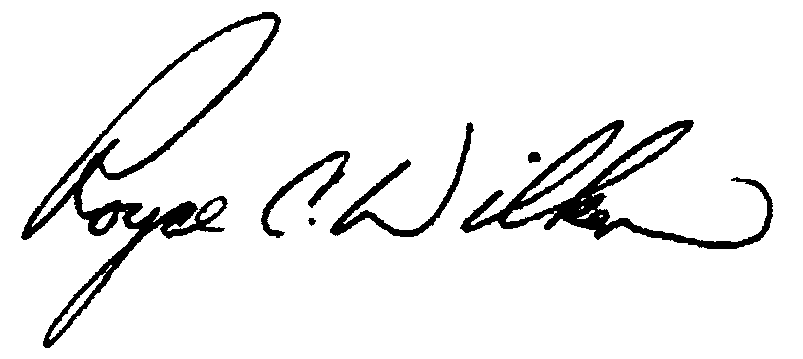 Royce C. Wilken